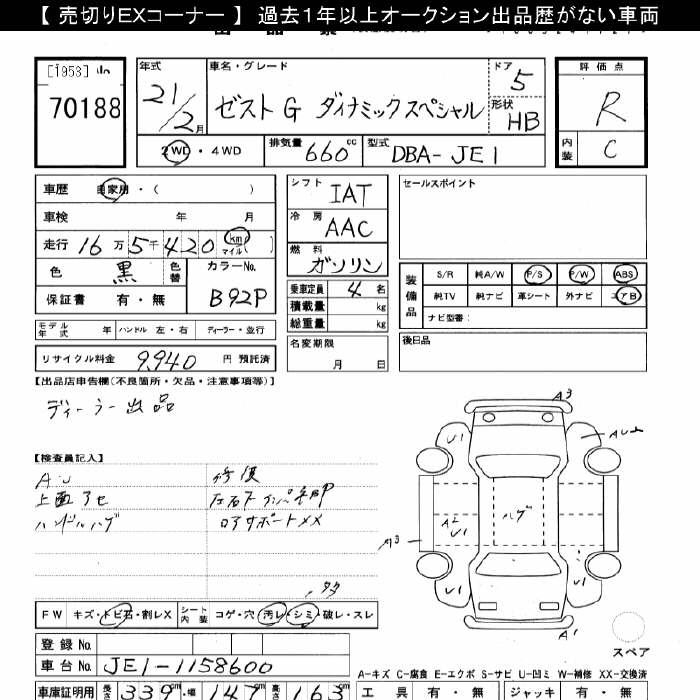 【 売切りEXコーナー 】 過去1年以上オークション出品歴がない車両
[1953]
70188
年式
21/2月
車名・グレード
ゼスト G ダイナミックスペシャル
ドア
5
形状
HB
評価点
R
内装
C
2WD・4WD
排気量
660cc
型式
DBA-JE1
車歴 自家用・( )
車検 年 月
走行 16万5千420 km マイル( )
色 黒 色替 カラーNo. B92P
保証書 有・無
シフト IAT
冷房 AAC
燃料 ガソリン
乗車定員 4名
積載量 kg
総重量 kg
名変期限
月 日
セールスポイント
装備品
S/R 純A/W P/S P/W ABS
純TV 純ナビ 革シート 外ナビ エアB
ナビ型番:
後日品
モデル年式 年 ハンドル 左・右 ディーラー・並行
リサイクル料金 9,940 円 預託済
【出品店申告欄(不良箇所・欠品・注意事項等)】
ディーラー出品
【検査員記入】
AU 修復
上面アセ
ハンドルハゲ
ロアサポートXX
A3
U1
A2
U1
A3
ハゲ
U1
U1
A1
スペア
FW キズ・トビ石・割レX シート内装 コゲ・穴 汚レ・シミ・破レ・スレ
登録 No.
車台 No. JE1-1158600
A-キズ C-腐食 E-エクボ S-サビ U-凹ミ W-補修 XX-交換済
車庫証明用 長さ 339cm・幅 147cm 高さ 163cm
工具 有・無 ジャッキ 有・無